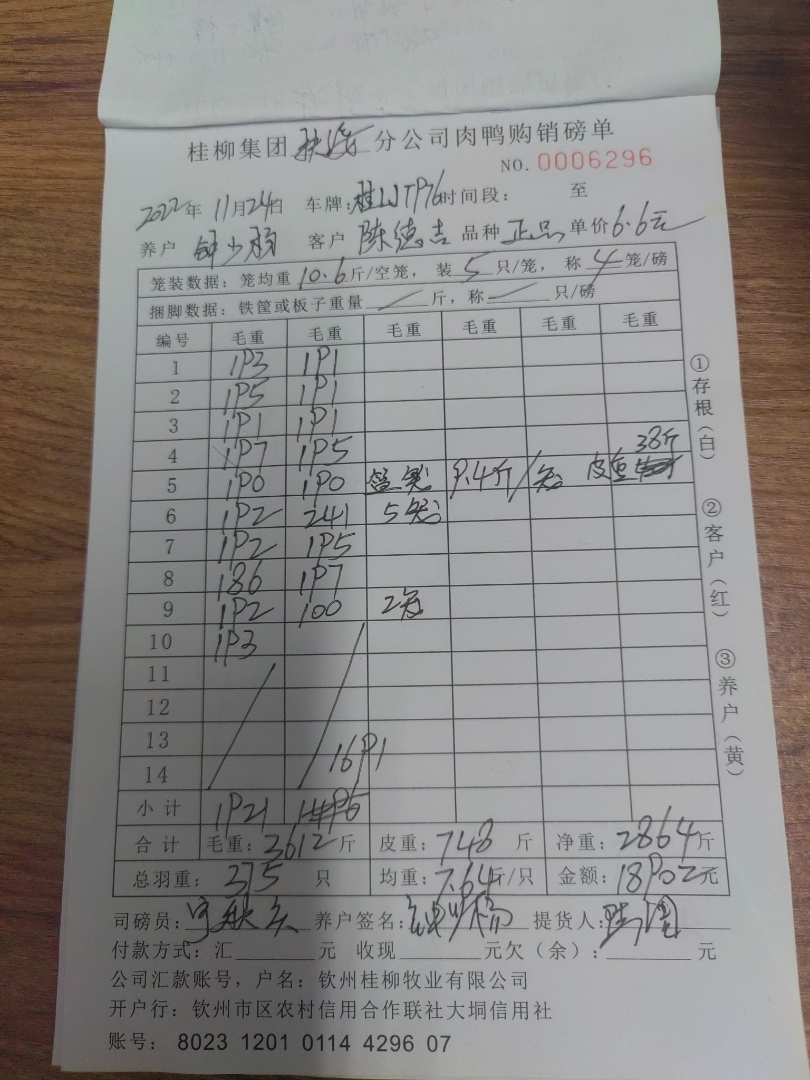 桂柳集团 分公司肉鸭购销磅单
NO. 0006296
2022年 11月24日 车牌: 时间段: 至
养户 钟少杨 客户 陈德吉 品种 正品 单价6.6元
笼装数据: 笼均重 10.6 斤/空笼, 装 5 只/笼, 称 4 笼/磅
捆脚数据: 铁筐或板子重量 / 斤, 称 / 只/磅
编号 毛重 毛重 毛重 毛重 毛重 毛重
1 193 191
2 195 191
3 191 191
4 197 195 38斤
5 190 190 9.4斤/笼 皮重
6 192 241 5笼
7 192 195
8 186 197
9 192 100 2笼
10 193
11
12
13 1691
14
小计 1921
合计 毛重: 3612 斤 皮重: 748 斤 净重: 2864 斤
总羽重: 375 只 均重: 7.64斤/只 金额: 18902元
司磅员: 养户签名: 提货人:
付款方式: 汇 元 收现 元欠(余): 元
公司汇款账号, 户名: 钦州桂柳牧业有限公司
开户行: 钦州市区农村信用合作联社大垌信用社
账号: 8023 1201 0114 4296 07
①存根(白)
②客户(红)
③养户(黄)